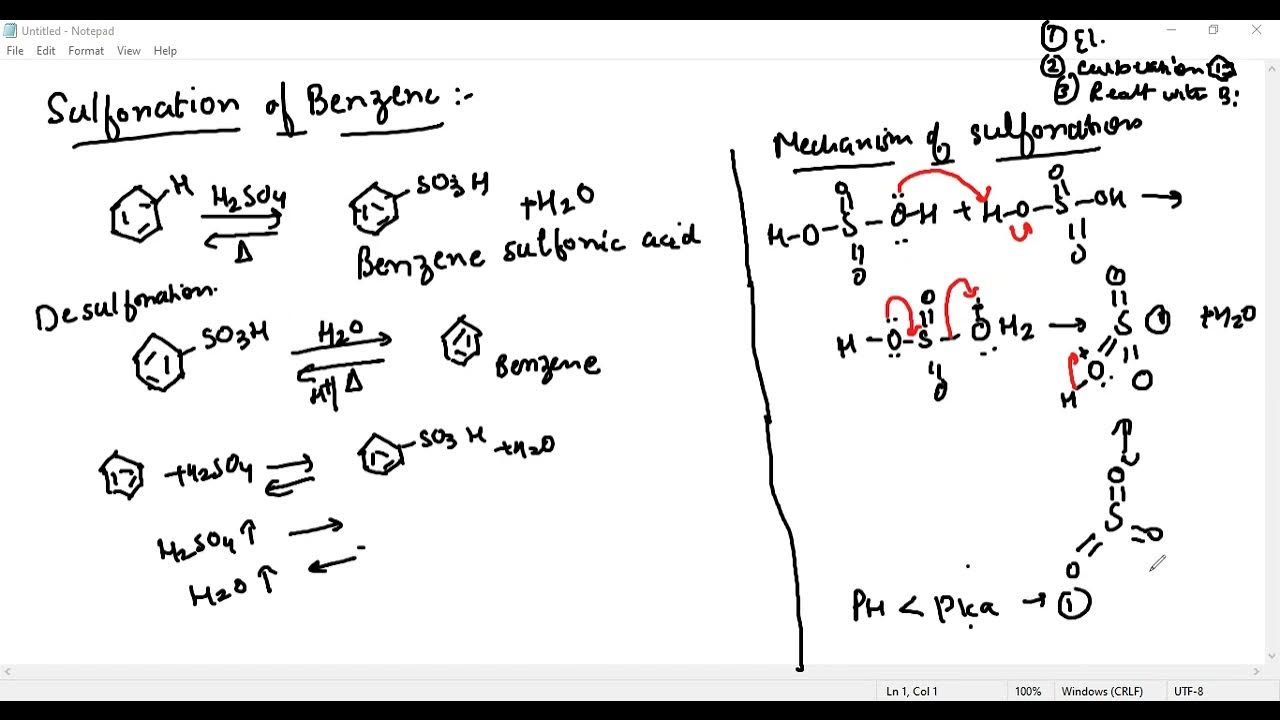 Untitled - Notepad
File Edit Format View Help
① El.
②
③ with B:
Sulfonation of Benzene :-
H H2SO4 Δ SO3H +H2O
Benzene sulfonic acid
Desulfonation.
SO3H H2O H+/Δ Benzene
+H2SO4 SO3H +H2O
H2SO4 ↑ →
H2O ↑ ←
Mechanism of sulfonation
O O
H-O-S-OH + H-O-S-OH →
O O
O +
H-O-S-OH2 → O=S ① +H2O
O O O
H
O
S=O
O
PH < Pka → ①
Ln 1, Col 1 100% Windows (CRLF) UTF-8